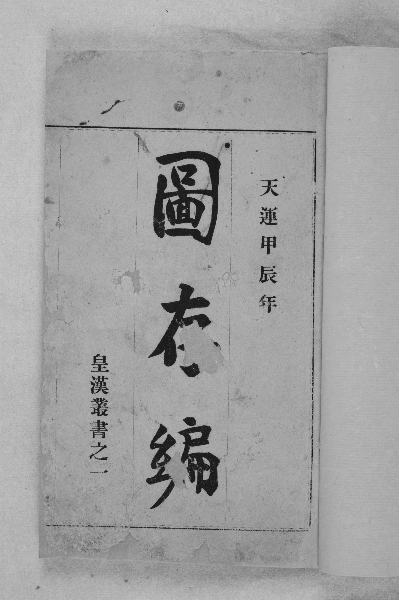 天運甲辰年
圖存編
皇漢叢書之一